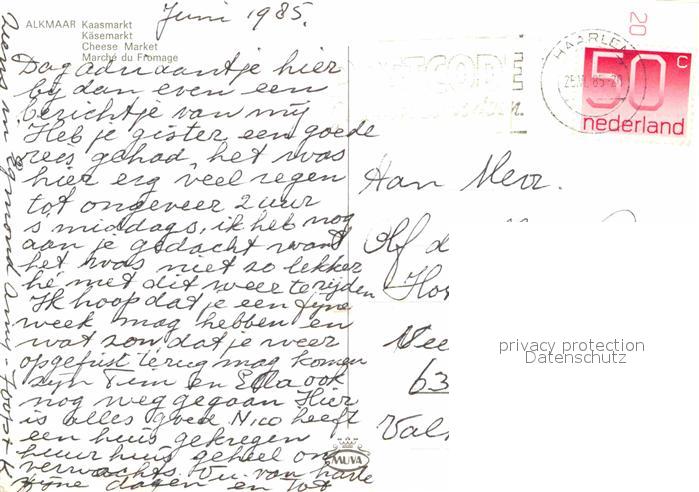 Juni 1985.
ALKMAAR Kaasmarkt
Käsemarkt
Cheese Market
Marché du Fromage
Dag adri zantje hier
bij dan even een
berichtje van mij
Heb je gister een goede
reis gehad, het was
hier erg veel regen
tot ongeveer 2 uur
s middags, ik heb nog
aan je gedacht want
het was niet zo lekker
hé met dit weer te rijden
Ik hoop dat je een fijne
week mag hebben en
wat zon dat je weer
opgefrist terug mag komen
zijn Tim en Ella ook
nog weg gegaan Hier
is alles goed Nico heeft
een huis gekregen
huur huis geheel on
verwachts. Nu van harte
fijne dagen en tot
HAARLEM
POSTCODE
50 C
nederland
20
Aan Mevr.
Hof d
Hor
Vee
63
Val
MUVA
privacy protection
Datenschutz